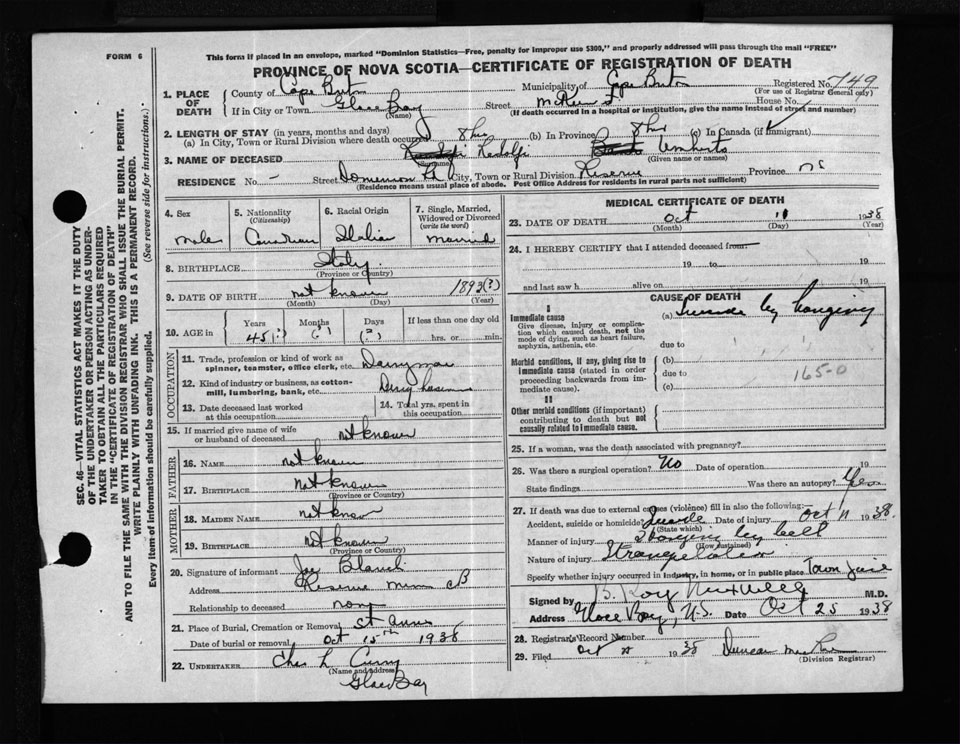 This form if placed in an envelope, marked "Dominion Statistics—Free, penalty for improper use $300," and properly addressed will pass through the mail "FREE"
FORM 6
PROVINCE OF NOVA SCOTIA—CERTIFICATE OF REGISTRATION OF DEATH
SEC. 46—VITAL STATISTICS ACT MAKES IT THE DUTY
OF THE UNDERTAKER OR PERSON ACTING AS UNDER-
TAKER TO OBTAIN ALL THE PARTICULARS REQUIRED
IN THE "CERTIFICATE OF REGISTRATION OF DEATH"
AND TO FILE THE SAME WITH THE DIVISION REGISTRAR WHO SHALL ISSUE THE BURIAL PERMIT.
WRITE PLAINLY WITH UNFADING INK. THIS IS A PERMANENT RECORD.
Every item of information should be carefully supplied. (See reverse side for instructions.)
1. PLACE OF DEATH County of Cape Breton Municipality of Cape Breton Registered No. 749
(For use of Registrar General only)
If in City or Town Glace Bay Street McKeen St House No.
(Name) (If death occurred in a hospital or institution, give the name instead of street and number)
2. LENGTH OF STAY (in years, months and days)
(a) In City, Town or Rural Division where death occurred 8 hrs (b) In Province 8 hrs (c) In Canada (if immigrant)
3. NAME OF DECEASED Umberto
(Surname) (Given name or names)
RESIDENCE No. - Street Dominion St City, Town or Rural Division Reserve Province NS
(Residence means usual place of abode. Post Office Address for residents in rural parts not sufficient)
4. Sex male
5. Nationality (Citizenship) Canadian
6. Racial Origin Italian
7. Single, Married, Widowed or Divorced (write the word) married
8. BIRTHPLACE Italy
(Province or Country)
9. DATE OF BIRTH not known 1893(?)
(Month) (Day) (Year)
10. AGE in Years 45(?) Months (?) Days (?) If less than one day old hrs. or min.
OCCUPATION
11. Trade, profession or kind of work as spinner, teamster, office clerk, etc. Dairyman
12. Kind of industry or business, as cotton-mill, lumbering, bank, etc.
13. Date deceased last worked at this occupation
14. Total yrs. spent in this occupation
15. If married give name of wife or husband of deceased not known
FATHER
16. NAME not known
17. BIRTHPLACE not known
(Province or Country)
MOTHER
18. MAIDEN NAME not known
19. BIRTHPLACE not known
(Province or Country)
20. Signature of informant Joe
Address Reserve Mines CB
Relationship to deceased none
21. Place of Burial, Cremation or Removal St Anns
Date of burial or removal Oct 15th 1938
22. UNDERTAKER Chas L Curry
(Name and address)
Glace Bay
MEDICAL CERTIFICATE OF DEATH
23. DATE OF DEATH Oct 11 1938
(Month) (Day) (Year)
24. I HEREBY CERTIFY that I attended deceased from
19 to 19
and last saw h alive on 19
CAUSE OF DEATH
I
Immediate cause
Give disease, injury or complication which caused death, not the mode of dying, such as heart failure, asphyxia, asthenia, etc.
(a) Suicide by hanging
due to
Morbid conditions, if any, giving rise to immediate cause (stated in order proceeding backwards from immediate cause).
(b)
due to
(c)
165-0
II
Other morbid conditions (if important) contributing to death but not causally related to immediate cause.
25. If a woman, was the death associated with pregnancy?
26. Was there a surgical operation? No Date of operation 19
State findings Was there an autopsy? Yes
27. If death was due to external causes (violence) fill in also the following:—
Accident, suicide or homicide? Suicide Date of injury Oct 11 1938.
(State which)
Manner of injury Hanging by belt
(How sustained)
Nature of injury Strangulation
Specify whether injury occurred in industry, in home, or in public place Town Jail
Signed by B. Roy M.D.
Address Glace Bay, N.S. Date Oct 25 1938
28. Registrar's Record Number
29. Filed Oct 1938 Duncan
(Division Registrar)